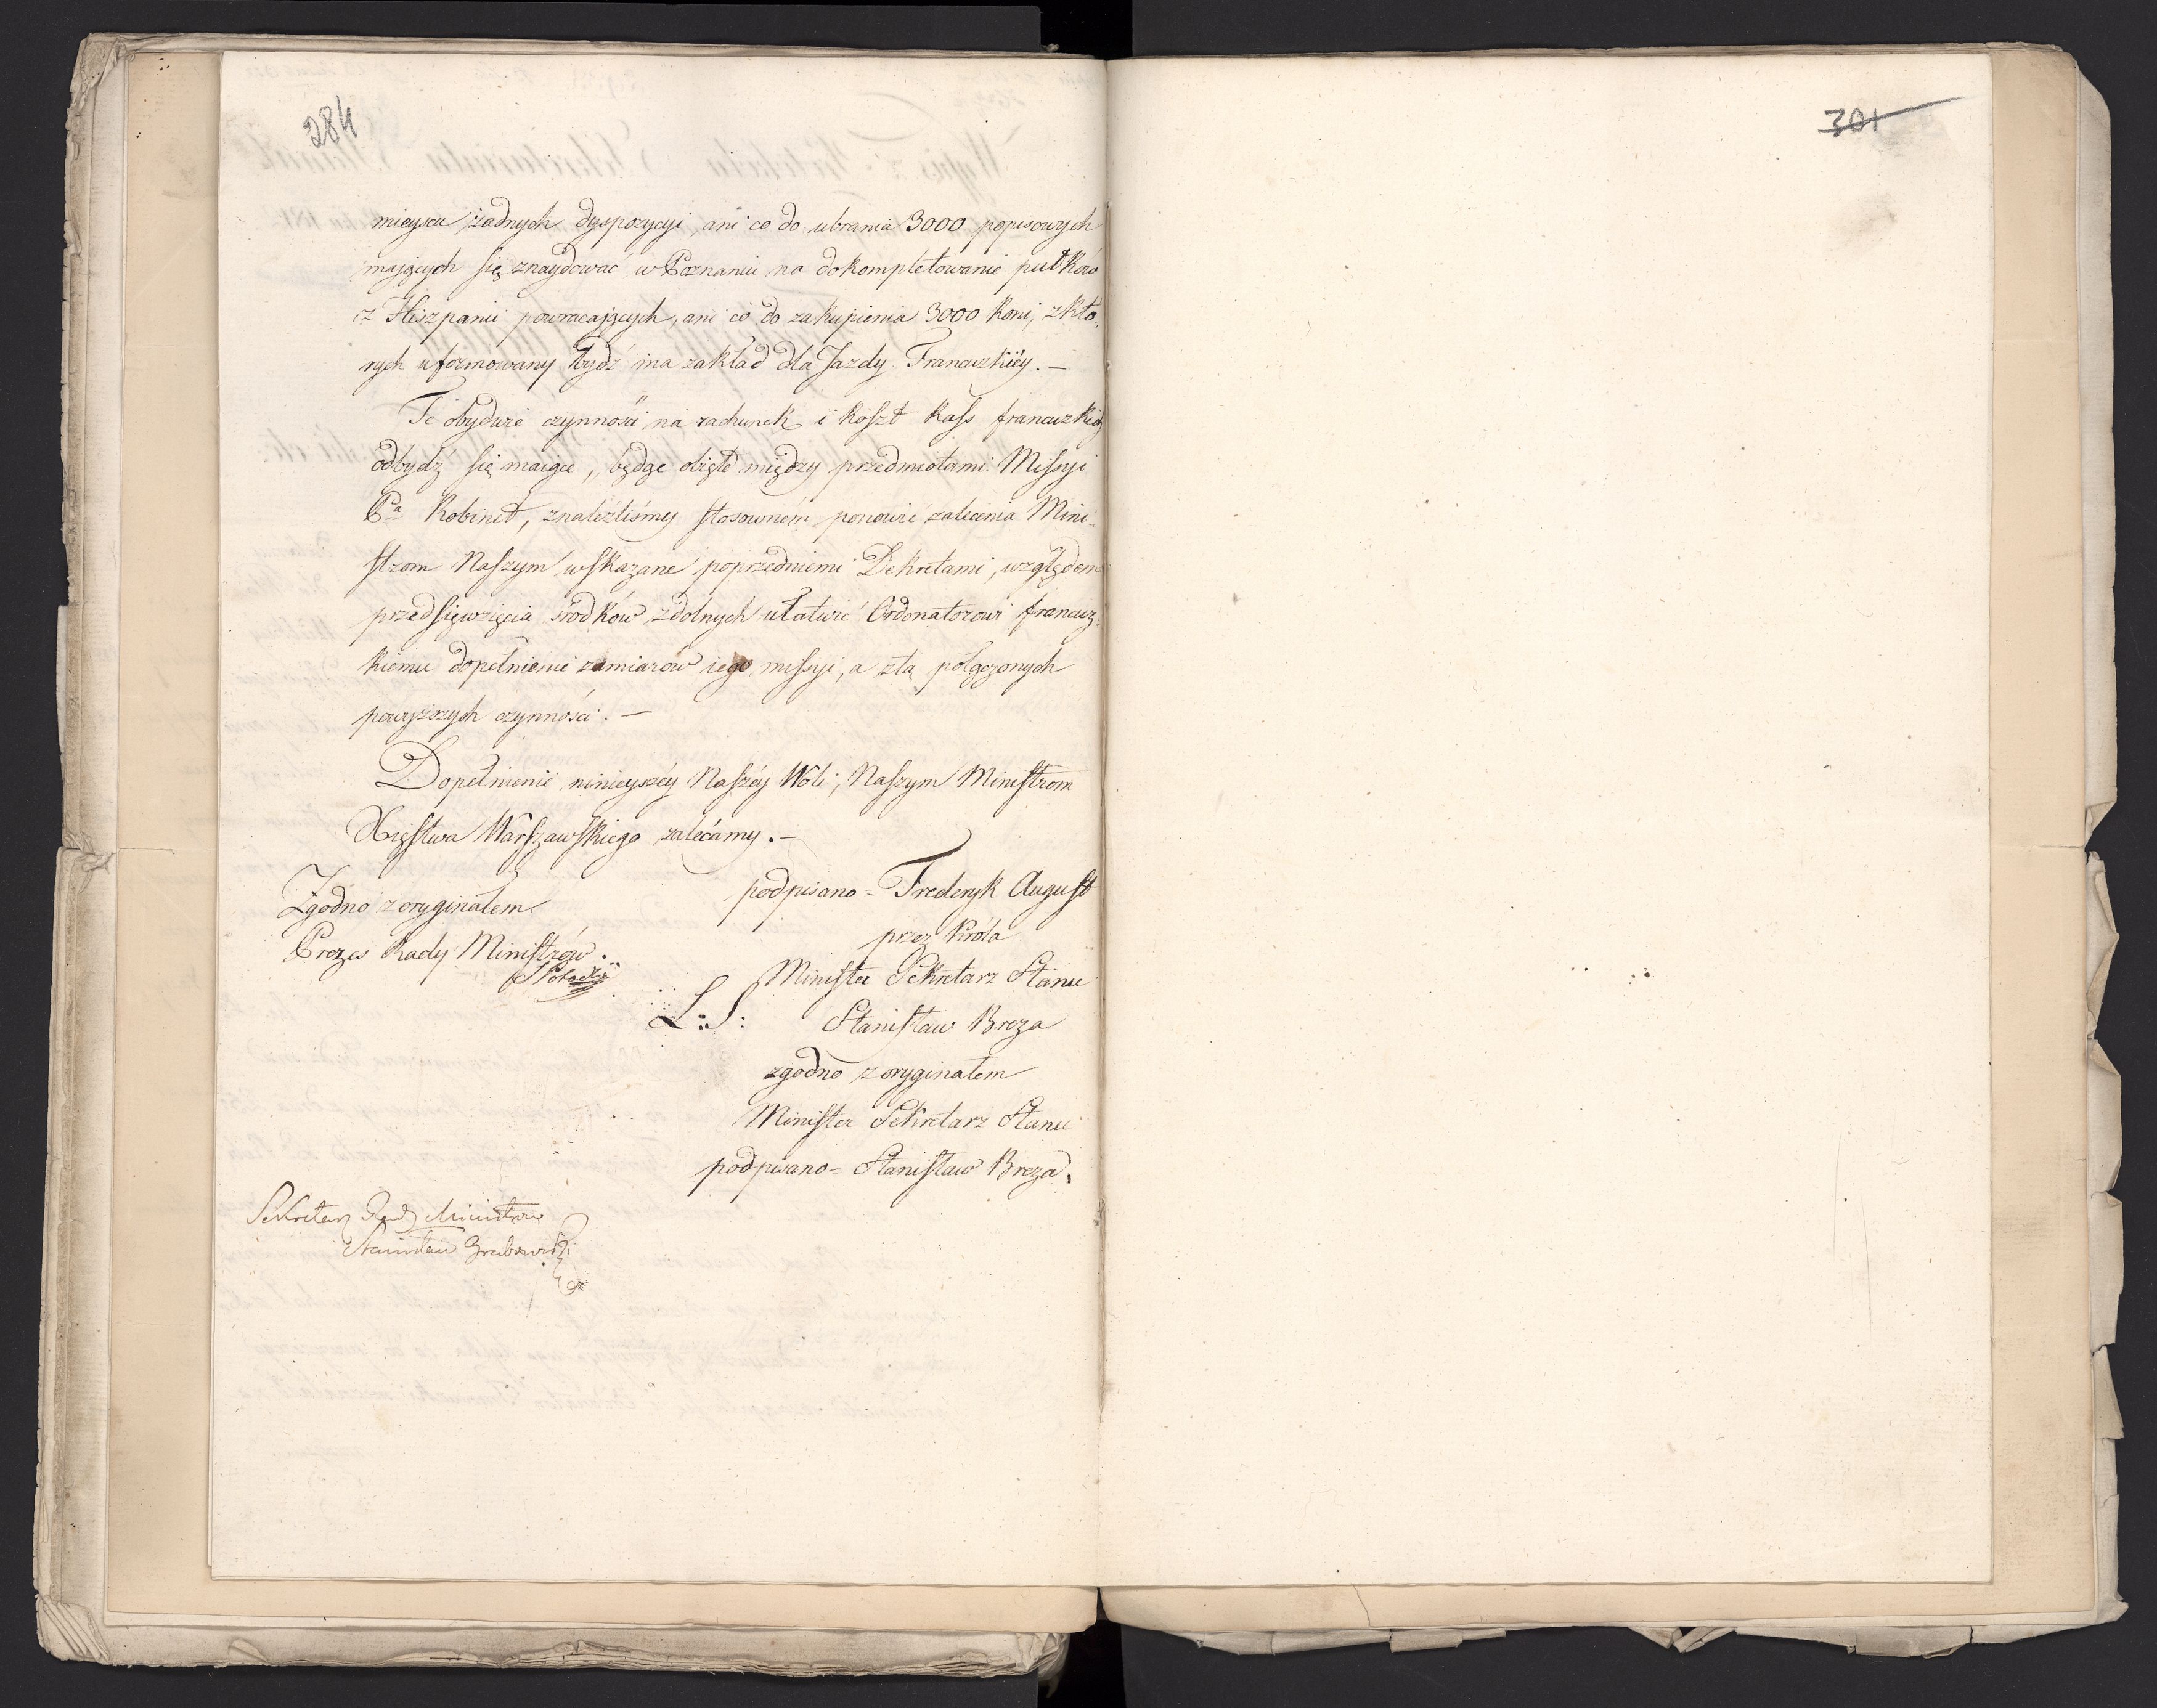 284
301
mieyscu żadnych dyspozycyi, ani co do ubrania 3000 popisowych
maiących się znaydować w Poznaniu na dokompletowanie pułków
z Hiszpanii powracaiących, ani co do zakupienia 3000 koni, z któ-
rych uformowany bydź ma zakład dla Jazdy Francuzkiéy. —
Te obydwie czynności na rachunek i koszt kass francuzkich
odbydź się maiące, będąc obięte między przedmiotami Missyi
Pa Robinet, znaleźliśmy stosowném ponowić zalecenia Mini-
strom Naszym wskazane poprzedniemi Dekretami, względem
przedsięwzięcia środków zdolnych ułatwić Ordonatorowi francuz-
kiemu dopełnienie zamiarów iego missyi, a z tą połączonych
powyższych czynności. —
Dopełnienie ninieyszéy Naszéy Woli, Naszym Ministrom
Xięstwa Warszawskiego zalecamy. —
Zgodno z oryginałem
Prezes Rady Ministrów.
S Potocki
podpisano = Frederyk August
przez Króla
Minister Sekretarz Stanu
L: S: Stanisław Breza
zgodno z oryginałem
Minister Sekretarz Stanu
podpisano = Stanisław Breza.
Sekretarz Rady Ministrów
Stanisław Grabowski